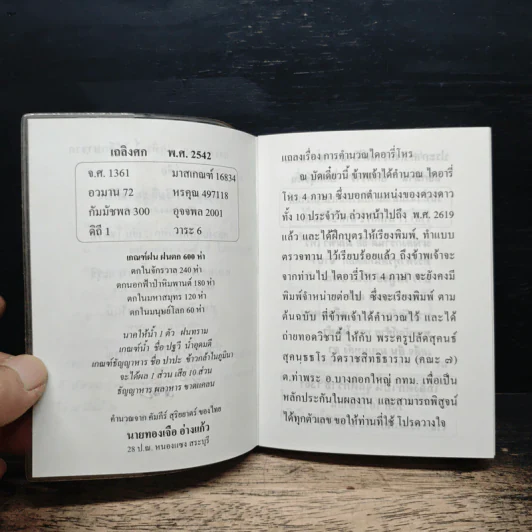 เถลิงศก พ.ศ. 2542
จ.ศ. 1361 มาสเกณฑ์ 16834
อวมาน 72 หรคุณ 497118
กัมมัชพล 300 อุจจพล 2001
ดิถี 1 วาระ 6
เกณฑ์ฝน ฝนตก 600 ห่า
ตกในจักรวาล 240 ห่า
ตกนอกฟ้าป่าหิมพานต์ 180 ห่า
ตกในมหาสมุทร 120 ห่า
ตกในมนุษย์โลก 60 ห่า
นาคให้น้ำ 1 ตัว ฝนทราม
เกณฑ์น้ำ ชื่อ ปฐวี น้ำอุดมดี
เกณฑ์ธัญญาหาร ชื่อ ปาปะ ข้าวกล้าในภูมินา
จะได้ผล 1 ส่วน เสีย 10 ส่วน
ธัญญาหาร ผลาหาร ขาดแคลน
คำนวณจาก คัมภีร์ สุริยยาตร์ ของไทย
นายทองเจือ อ่างแก้ว
28 ป.ณ. หนองแซง สระบุรี
แถลงเรื่อง การคำนวณไดอารี่โหร
ณ บัดเดี๋ยวนี้ ข้าพเจ้าได้คำนวณ ไดอารี่
โหร 4 ภาษา ซึ่งบอกตำแหน่งของดวงดาว
ทั้ง 10 ประจำวัน ล่วงหน้าไปถึง พ.ศ. 2619
แล้ว และได้ฝึกบุตรให้เรียงพิมพ์, ทำแบบ
ตรวจทาน ไว้เรียบร้อยแล้ว ถึงข้าพเจ้าจะ
จากท่านไป ไดอารี่โหร 4 ภาษา จะยังคงมี
พิมพ์จำหน่ายต่อไป ซึ่งจะเรียงพิมพ์ ตาม
ต้นฉบับ ที่ข้าพเจ้าได้คำนวณไว้ และได้
ถ่ายทอดวิชานี้ ให้กับ พระครูปลัดสุคนธ์
สุคนธธโร วัดราชสิทธิธาราม (คณะ ๗)
ต.ท่าพระ อ.บางกอกใหญ่ กทม. เพื่อเป็น
หลักประกันในผลงาน และสามารถพิสูจน์
ได้ทุกตัวเลข ขอให้ท่านที่ใช้ โปรดวางใจ